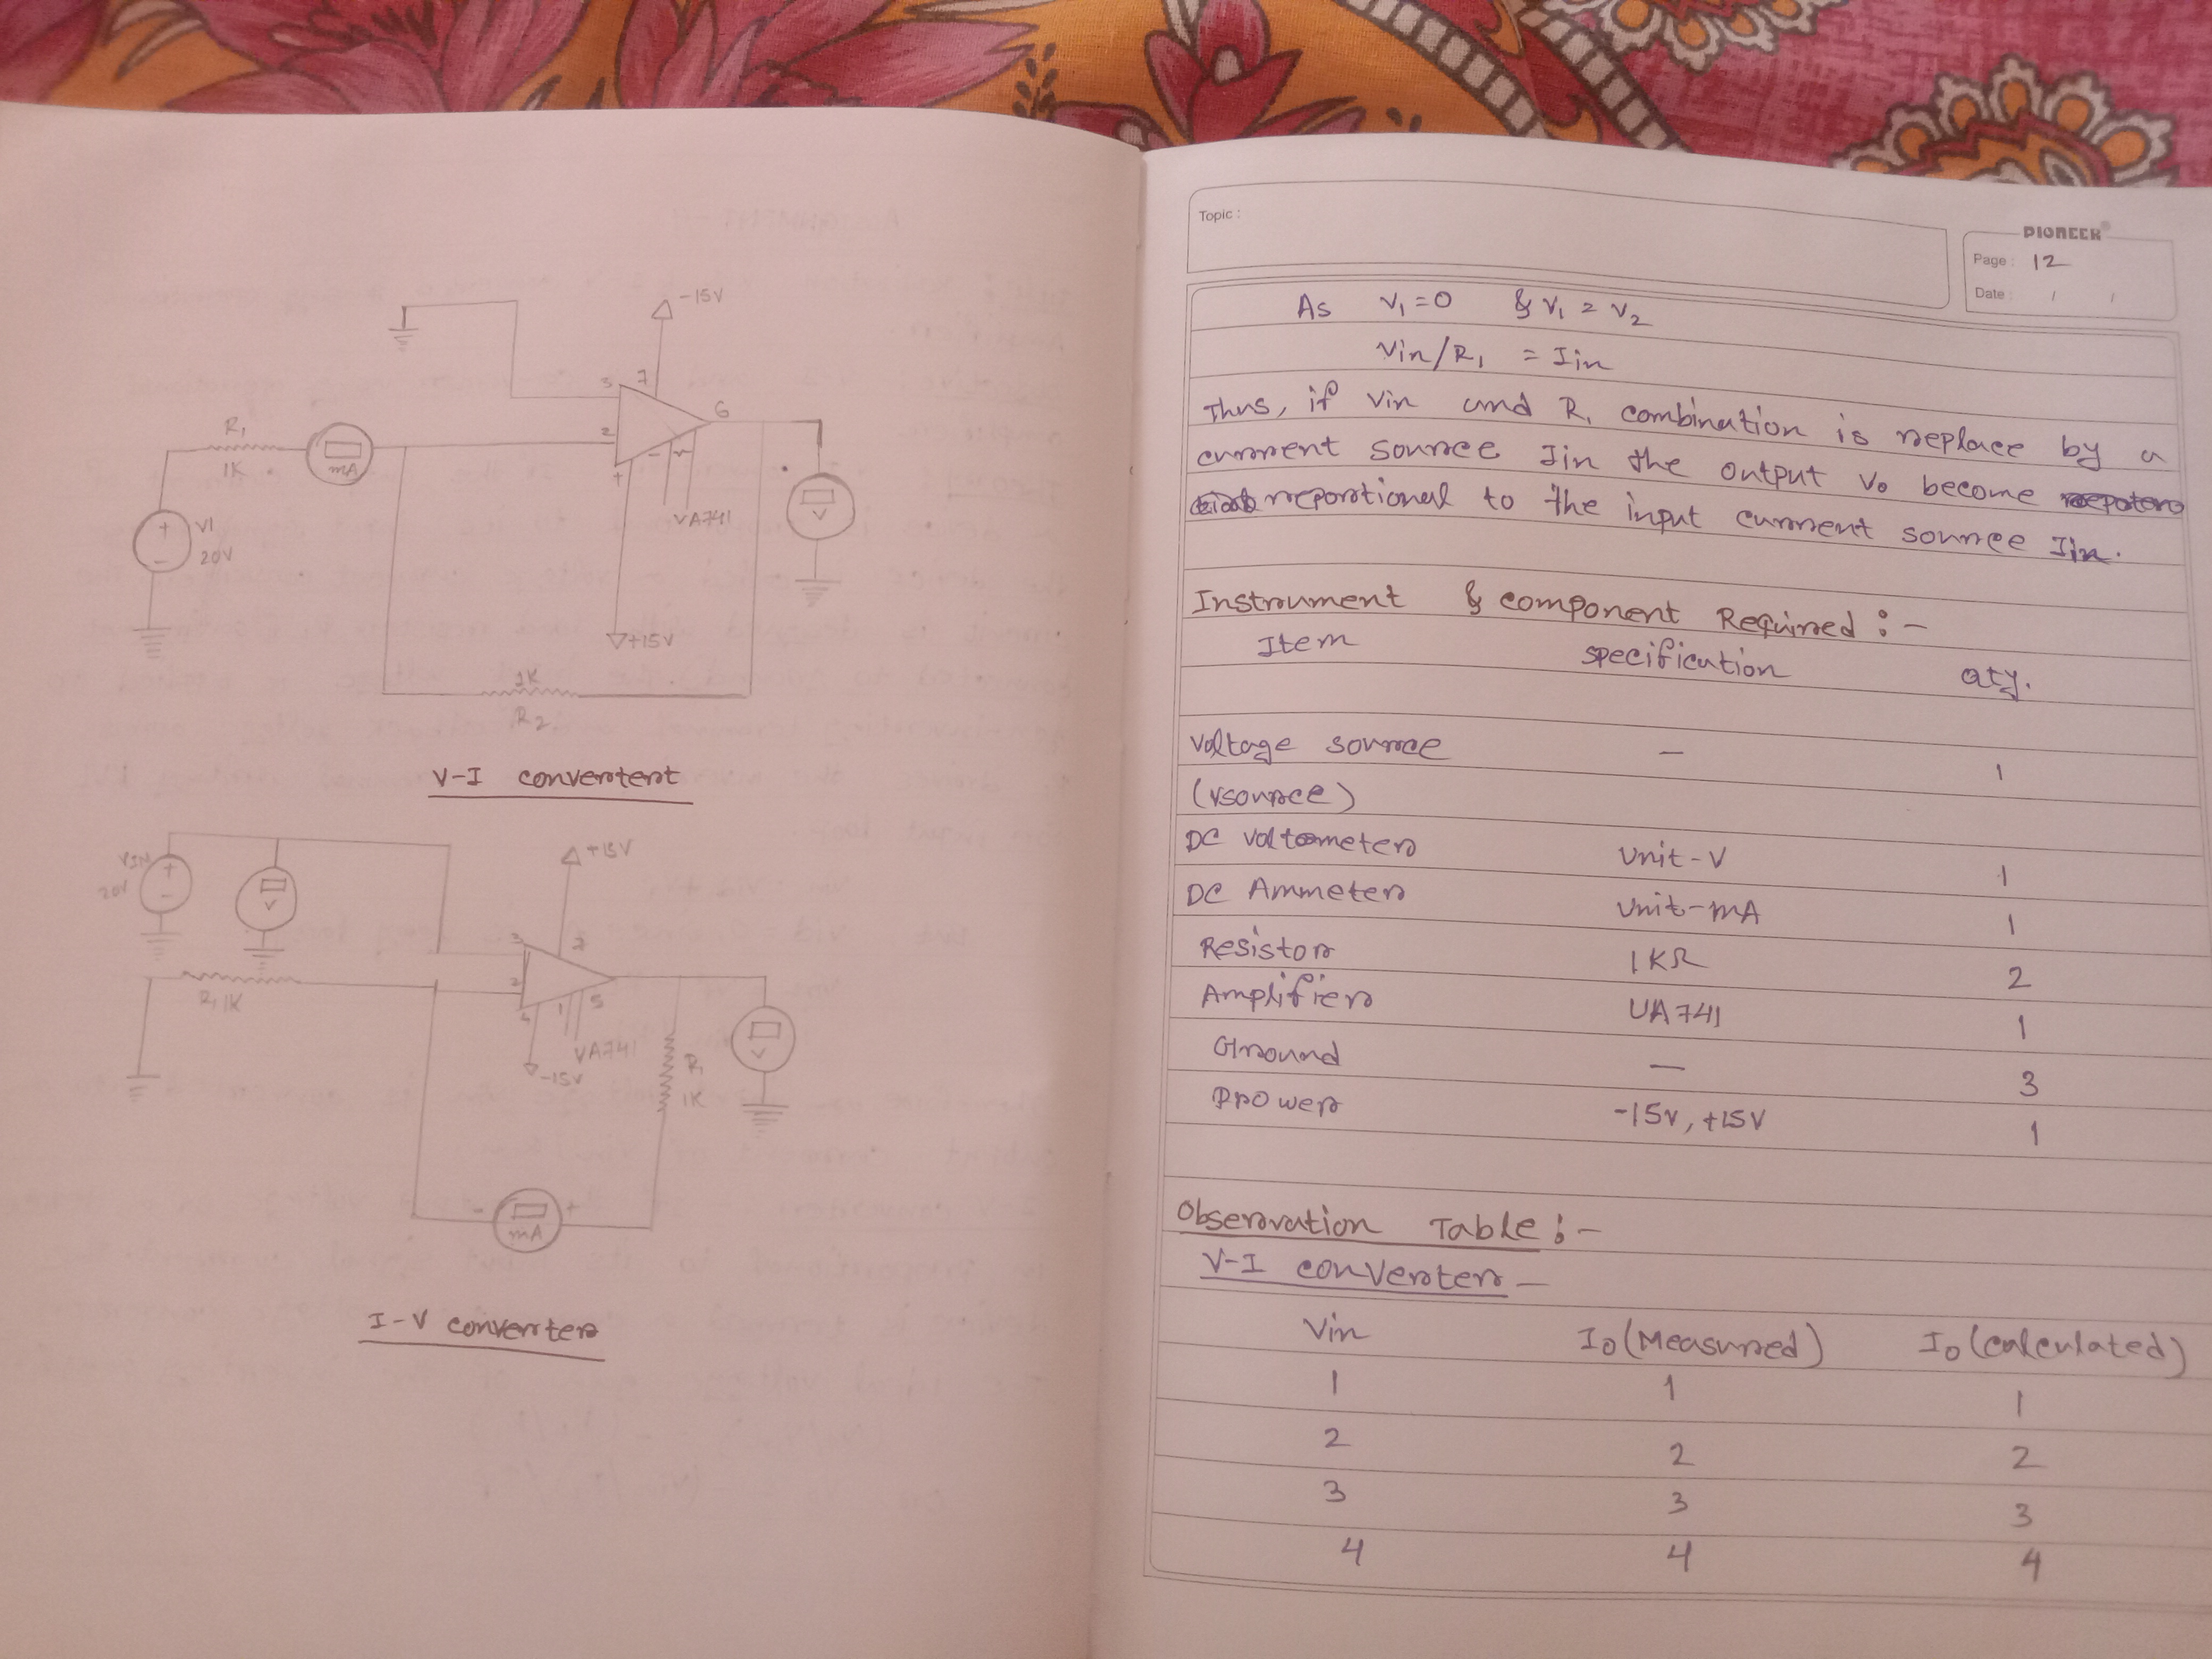 -15V
3
7
6
2
R1
1K
mA
V
V1
20V
UA741
+15V
1K
R2
V-I convertert
VIN
20V
V
+15V
3
7
2
4
1
5
R1 1K
UA741
-15V
R1
1K
V
mA
I-V converter
Topic :
PIONEER
Page : 12
Date : / /
As V1 = 0 & V1 = V2
Vin/R1 = Iin
Thus, if Vin and R1 combination is replace by a
current source Iin the output Vo become
reportional to the input current source Iin.
Instrument & component Required :-
Item specification Qty.
Voltage source — 1
(vsource)
DC voltometer Unit-V 1
DC Ammeter Unit-mA 1
Resistor 1KΩ 2
Amplifier UA741 1
Ground — 3
Power -15V, +15V 1
Observation Table :-
V-I converter —
Vin Io (Measured) Io (calculated)
1 1 1
2 2 2
3 3 3
4 4 4